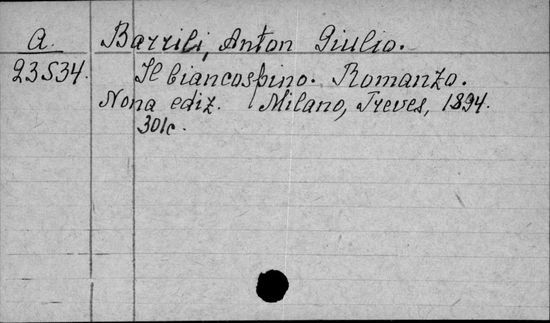 A. Barrili, Anton Giulio.
23534. Il biancospino. Romanzo.
Nona ediz. Milano, Treves, 1894.
301c.